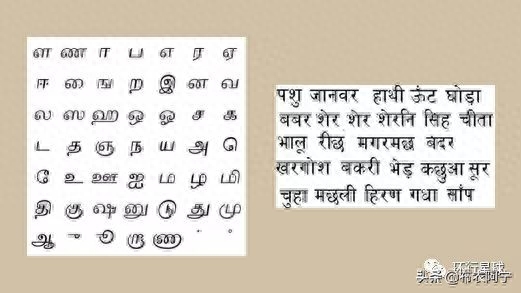 ள ண ா ப எ ர ஏ
ஈ ை ங ற இ ன வ
ல ஸ ஹ ஒ ஓ ச க
ட த ஞ ந ய அ ெ
ே உ ஊ ஐ ம ழ மி
தி கு ஷ னு டு து மு
ஆ
पशु जानवर हाथी ऊंट घोड़ा
बबर शेर शेर शेरनि सिंह चीता
भालू रीछ मगरमछ बंदर
खरगोश बकरी भेड़ कछुआ सूर
चुहा मछली हिरण गधा सांप
环行星球
头条 @布衣阿宁